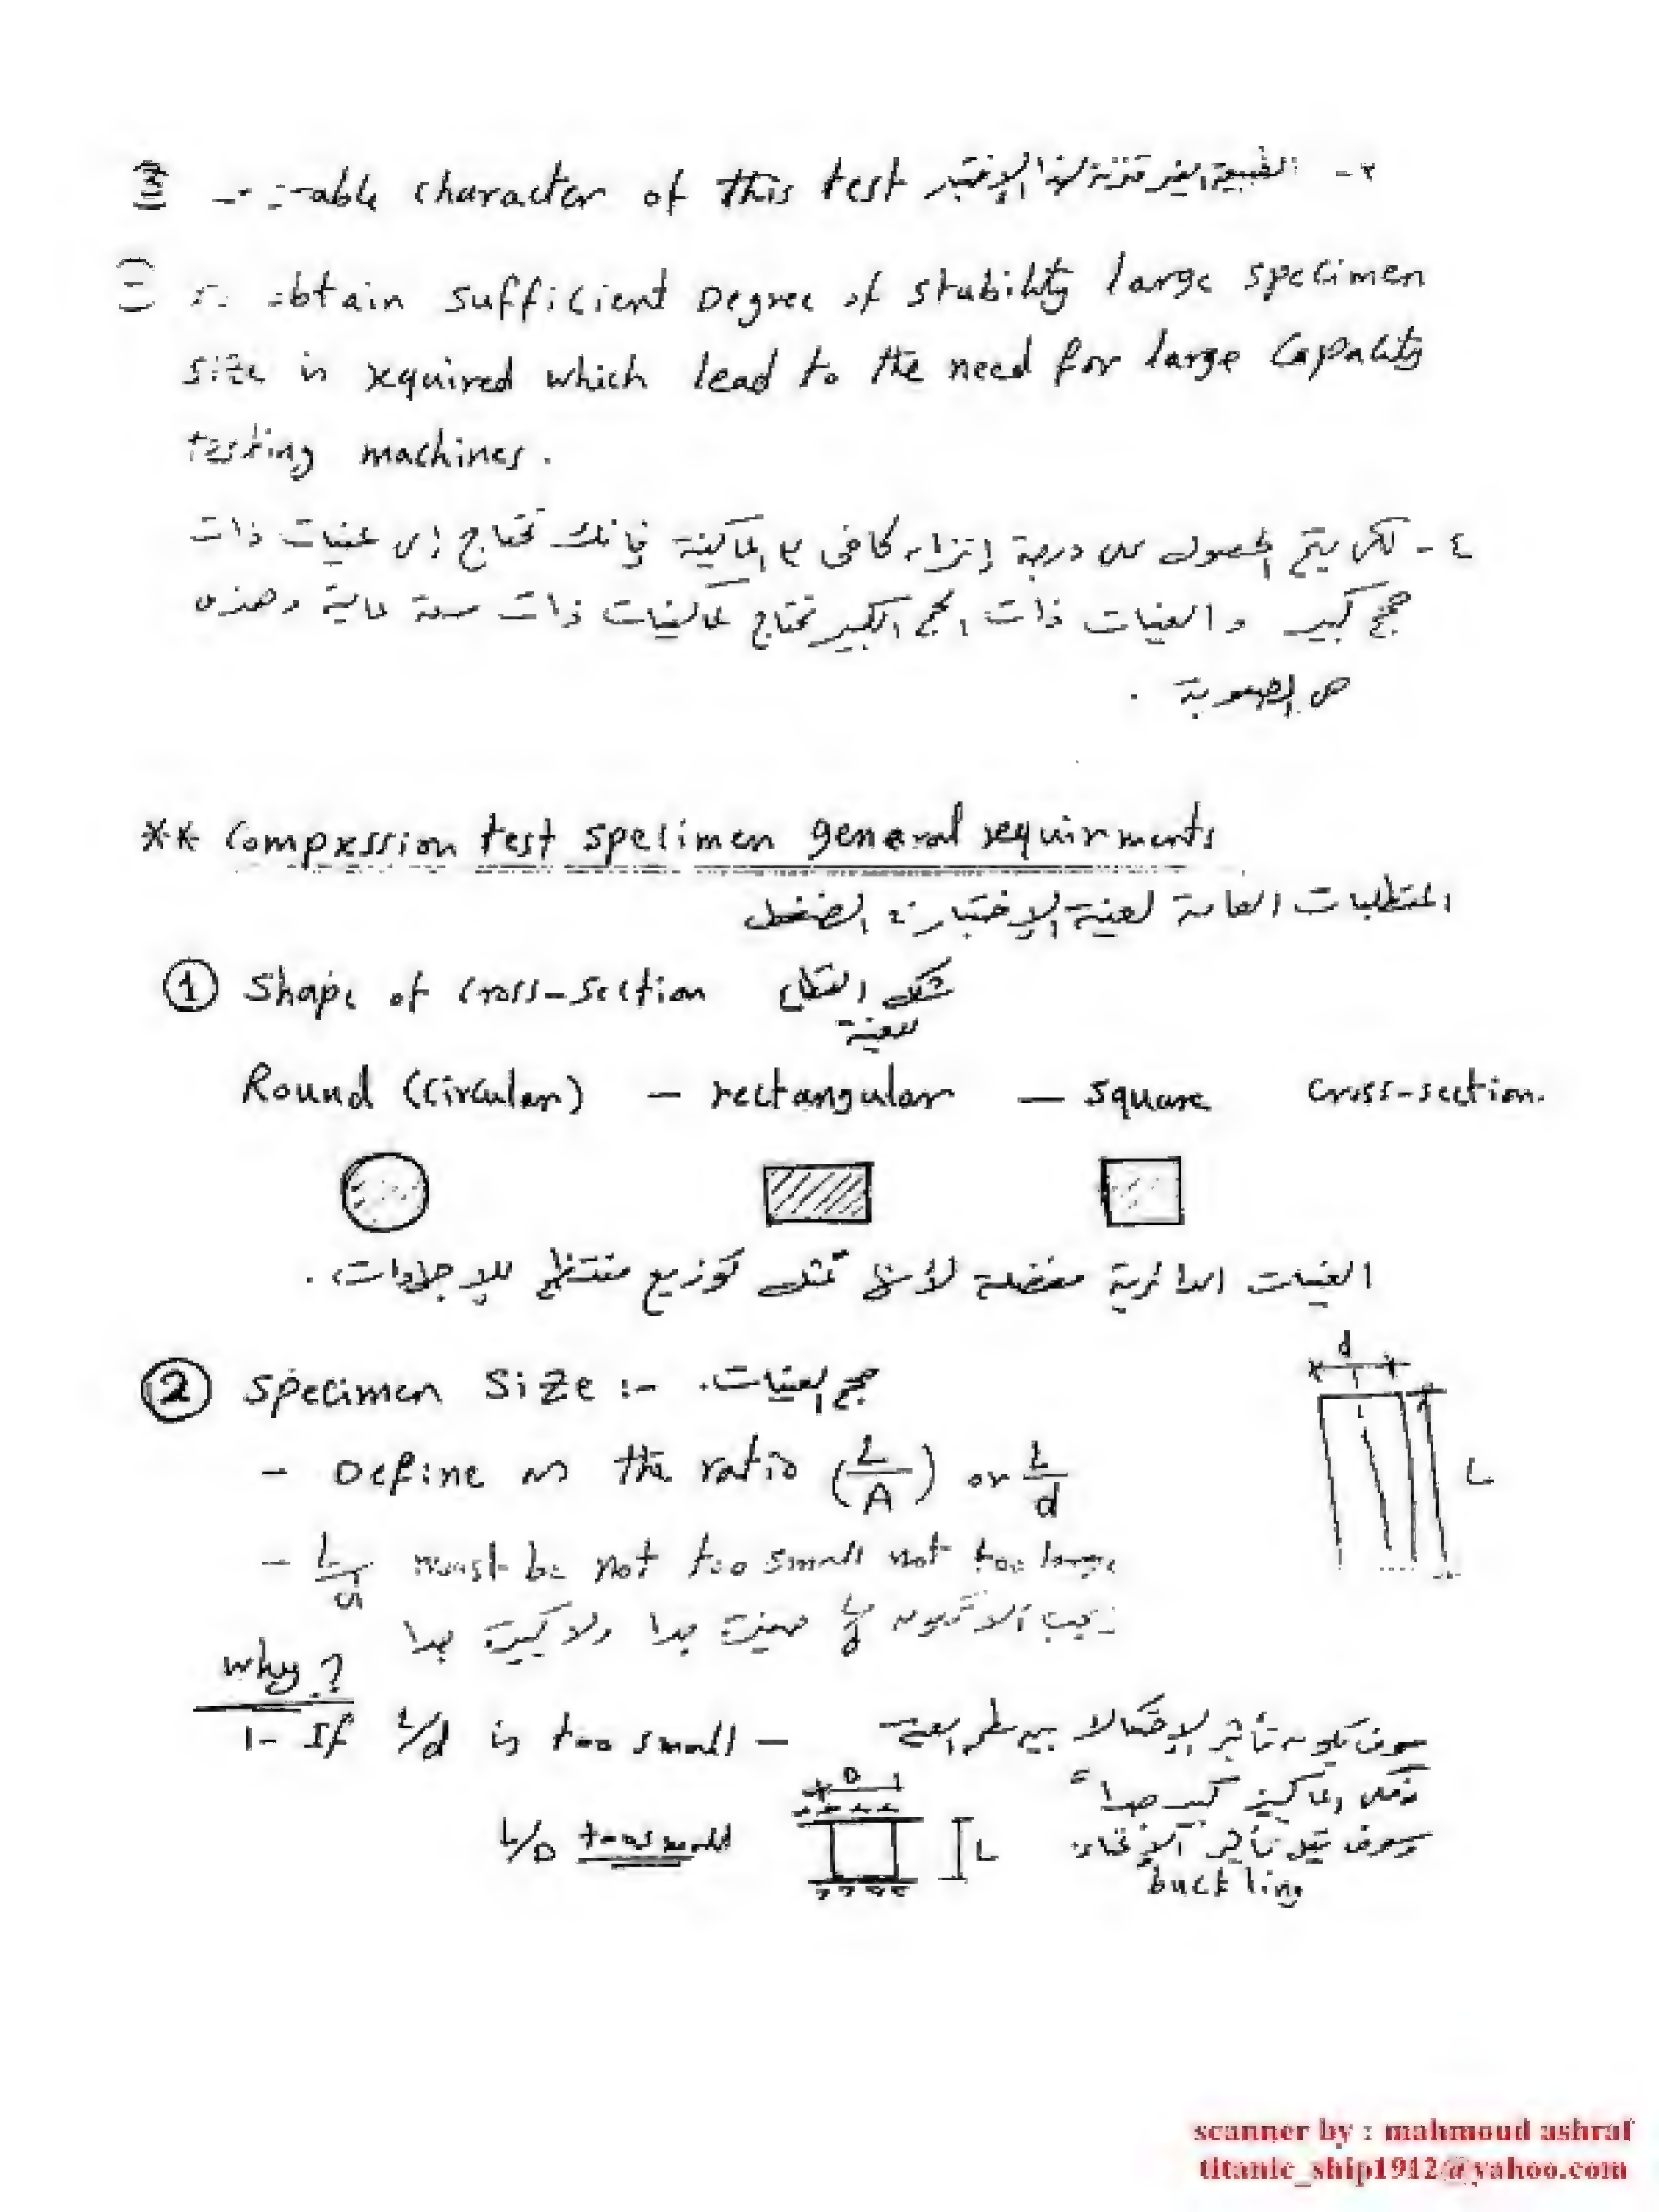 ③ -able character of this test ٣- الطبيعة الغير متزنة لهذا الإختبار
obtain sufficient Degree of stability large specimen
size is required which lead to the need for large Capacity
testing machines.
٤- لكى يتم الحصول على درجة إتزان كافى الماكينة فإنك تحتاج إلى عينات ذات
حجم كبير و العينات ذات الحجم الكبير تحتاج ماكينات ذات سعة عالية وهذه
الصعوبة .
** Compression test specimen general requirments
المتطلبات العامة لعينة الإختبار الضغط
① Shape of cross-section شكل القطاع
للعينة
Round (Circular) - rectangular - square cross-section.
العينات الدائرية مفضلة لأنها تمثل توزيع منتظم للإجهادات .
d
② Specimen Size :- حجم العينات.
- Define as the ratio (L/A) or L/d
L
- L/d must be not too small not too large
يجب ألا تكون L/d صغيرة جدا ولا كبيرة جدا
why?
1- If L/d is too small - سوف يكون تأثير الإحتكاك بين سطح العينة
وفكى الماكينة كبير جداً
D
L/D too small
L
وسوف يقل تأثير الإنبعاج
buckling
scanner by : mahmoud ashraf
titanic_ship1912@yahoo.com